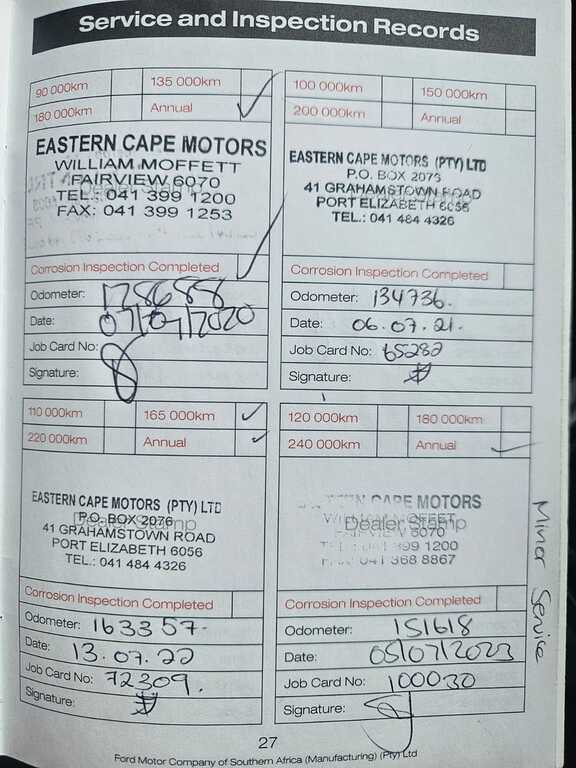 Service and Inspection Records
90 000km 135 000km
180 000km Annual ✓
EASTERN CAPE MOTORS
WILLIAM MOFFETT
FAIRVIEW 6070
Dealer Stamp
TEL.: 041 399 1200
FAX: 041 399 1253
Corrosion Inspection Completed ✓
Odometer: 128688
Date: 07/07/2020
Job Card No:
Signature:
100 000km 150 000km
200 000km Annual
EASTERN CAPE MOTORS (PTY) LTD
P.O. BOX 2076
41 GRAHAMSTOWN ROAD
Dealer Stamp
PORT ELIZABETH 6056
TEL.: 041 484 4326
Corrosion Inspection Completed
Odometer: 134736.
Date: 06.07.21.
Job Card No: 65282
Signature:
110 000km 165 000km ✓
220 000km Annual ✓
EASTERN CAPE MOTORS (PTY) LTD
P.O. BOX 2076
Dealer Stamp
41 GRAHAMSTOWN ROAD
PORT ELIZABETH 6056
TEL.: 041 484 4326
Corrosion Inspection Completed
Odometer: 163357.
Date: 13.07.22
Job Card No: 72309.
Signature:
120 000km 180 000km
240 000km Annual ✓
CAPE MOTORS
Dealer Stamp
6070
399 1200
041 368 8867
Corrosion Inspection Completed
Odometer: 151618
Date: 05/07/2023
Job Card No: 100030
Signature:
Minor Service
27
Ford Motor Company of Southern Africa (Manufacturing) (Pty) Ltd